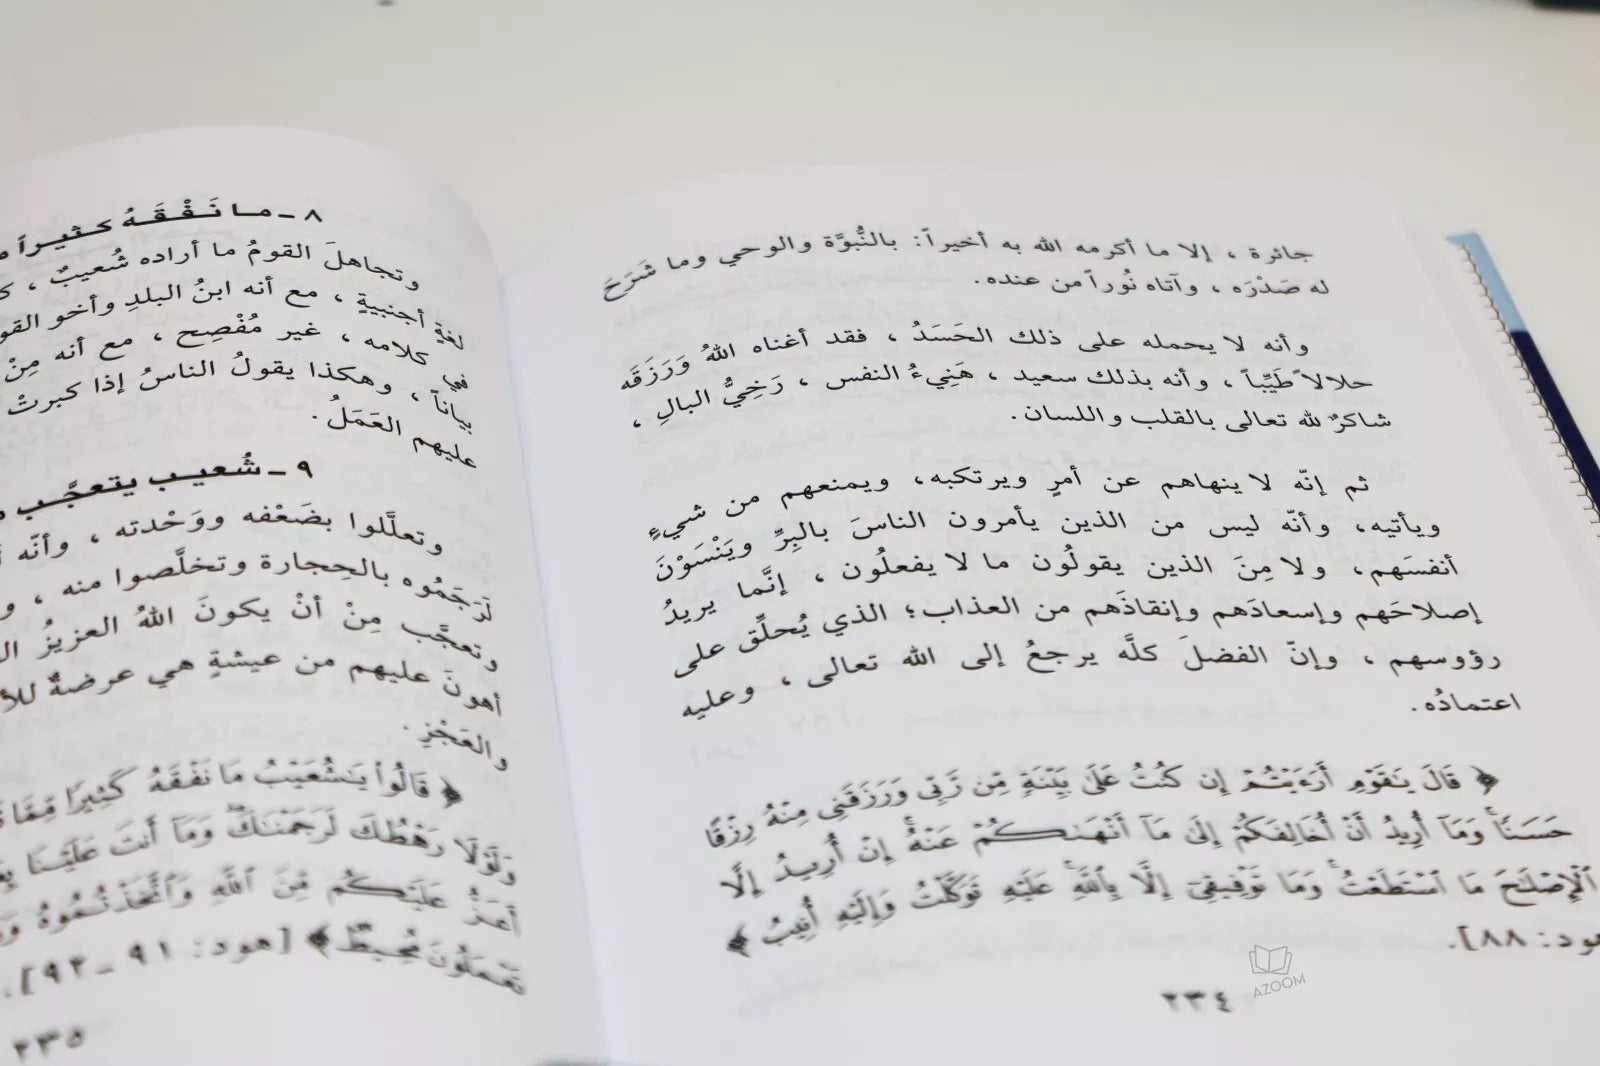 جائرة ، إلا ما أكرمه الله به أخيراً: بالنُّبوَّة والوحي وما شَرَحَ
له صَدْرَه ، وآتاه نُوراً من عنده.
وأنه لا يحمله على ذلك الحَسَدُ ، فقد أغناه اللهُ وَرَزَقَه
حلالاً طَيِّباً ، وأنه بذلك سعيد ، هَنِيءُ النفس ، رَخِيُّ البالِ ،
شاكرٌ لله تعالى بالقلب واللسان.
ثم إنّه لا ينهاهم عن أمرٍ ويرتكبه، ويمنعهم من شيءٍ
ويأتيه، وأنّه ليس من الذين يأمرون الناسَ بالبِرِّ ويَنْسَوْنَ
أنفسَهم، ولا مِنَ الذين يقولُون ما لا يفعلُون ، إنَّما يريدُ
إصلاحَهم وإسعادَهم وإنقاذَهم من العذاب؛ الذي يُحلِّق على
رؤوسهم ، وإنّ الفضلَ كلَّه يرجعُ إلى الله تعالى ، وعليه
اعتمادُه.
﴿ قَالَ يَـٰقَوْمِ أَرَءَيْتُمْ إِن كُنتُ عَلَىٰ بَيِّنَةٍ مِّن رَّبِّي وَرَزَقَنِي مِنْهُ رِزْقًا
حَسَنًا ۚ وَمَآ أُرِيدُ أَنْ أُخَالِفَكُمْ إِلَىٰ مَآ أَنْهَىٰكُمْ عَنْهُ ۚ إِنْ أُرِيدُ إِلَّا
ٱلْإِصْلَٰحَ مَا ٱسْتَطَعْتُ ۚ وَمَا تَوْفِيقِيٓ إِلَّا بِٱللَّهِ ۚ عَلَيْهِ تَوَكَّلْتُ وَإِلَيْهِ أُنِيبُ ﴾
هود: ٨٨].
٢٣٤
AZOOM
٨ ـ مـا نَـفْـقَـهُ كـثـيـراً
وتجاهلَ القومُ ما أراده شُعيبٌ ،
لغةٍ أجنبيةٍ ، مع أنه ابنُ البلدِ وأخو
في كلامه ، غير مُفْصِح ، مع أنه مِنْ
بياناً ، وهكذا يقولُ الناسُ إذا كبرتْ
عليهم العَمَلُ.
٩ ـ شُعيـب يتعجَّـب
وتعلَّلوا بضَعْفه ووَحْدته ، وأنّه
لَرَجَمُوه بالحِجارة وتخلَّصوا منه ،
وتعجَّب مِنْ أنْ يكونَ اللهُ العزيزُ
أهونَ عليهم من عيشةٍ هي عرضةٌ
والعَجْزِ.
﴿ قَالُوا۟ يَـٰشُعَيْبُ مَا نَفْقَهُ كَثِيرًا مِّمَّا
وَلَوْلَا رَهْطُكَ لَرَجَمْنَـٰكَ ۖ وَمَآ أَنتَ عَلَيْنَا
أَعَزُّ عَلَيْكُم مِّنَ ٱللَّهِ وَٱتَّخَذْتُمُوهُ
تَعْمَلُونَ مُحِيطٌ ﴾ [هود: ٩١ ـ ٩٢].
٢٣٥